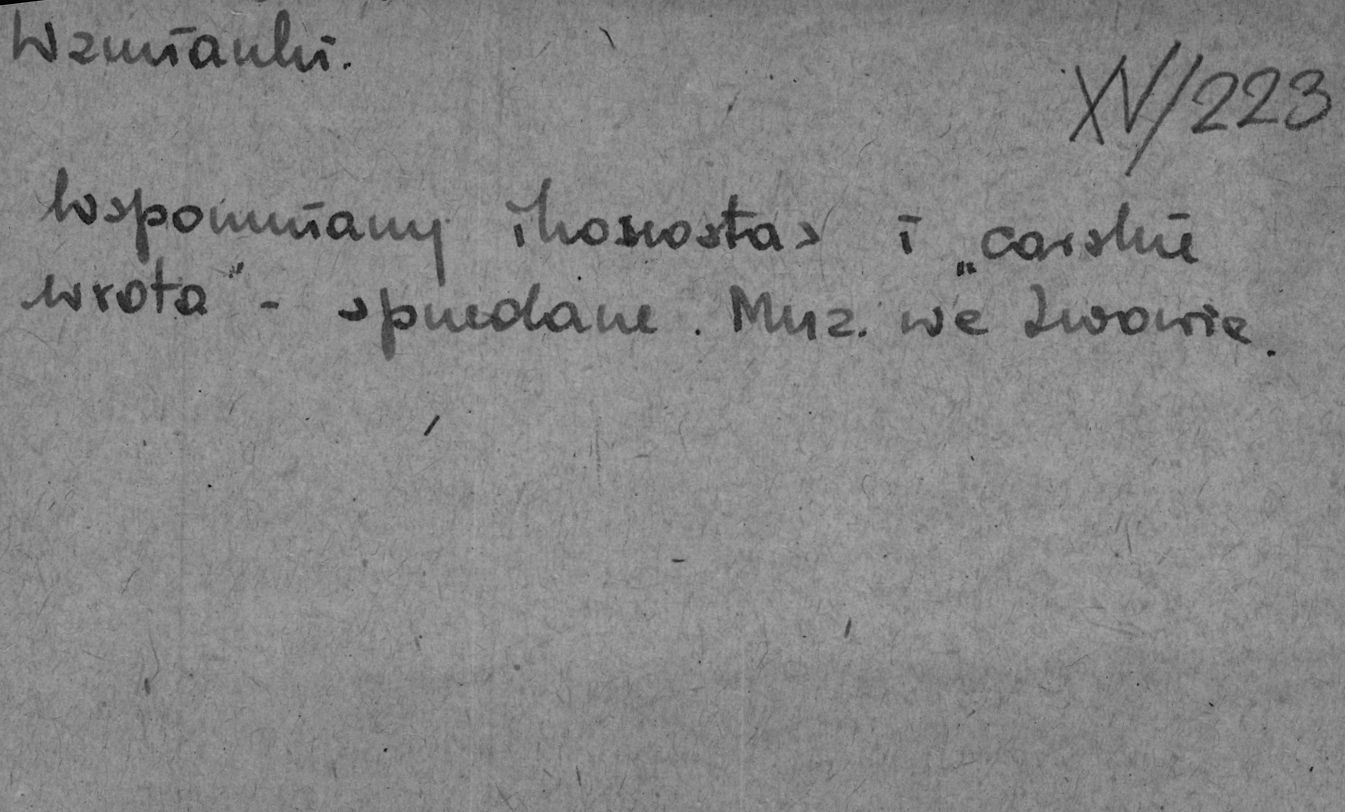 Wzmianki.
XV/223
Wspomniany ikonostas i „carskie
wrota" - sprzedane. Muz. we Lwowie.